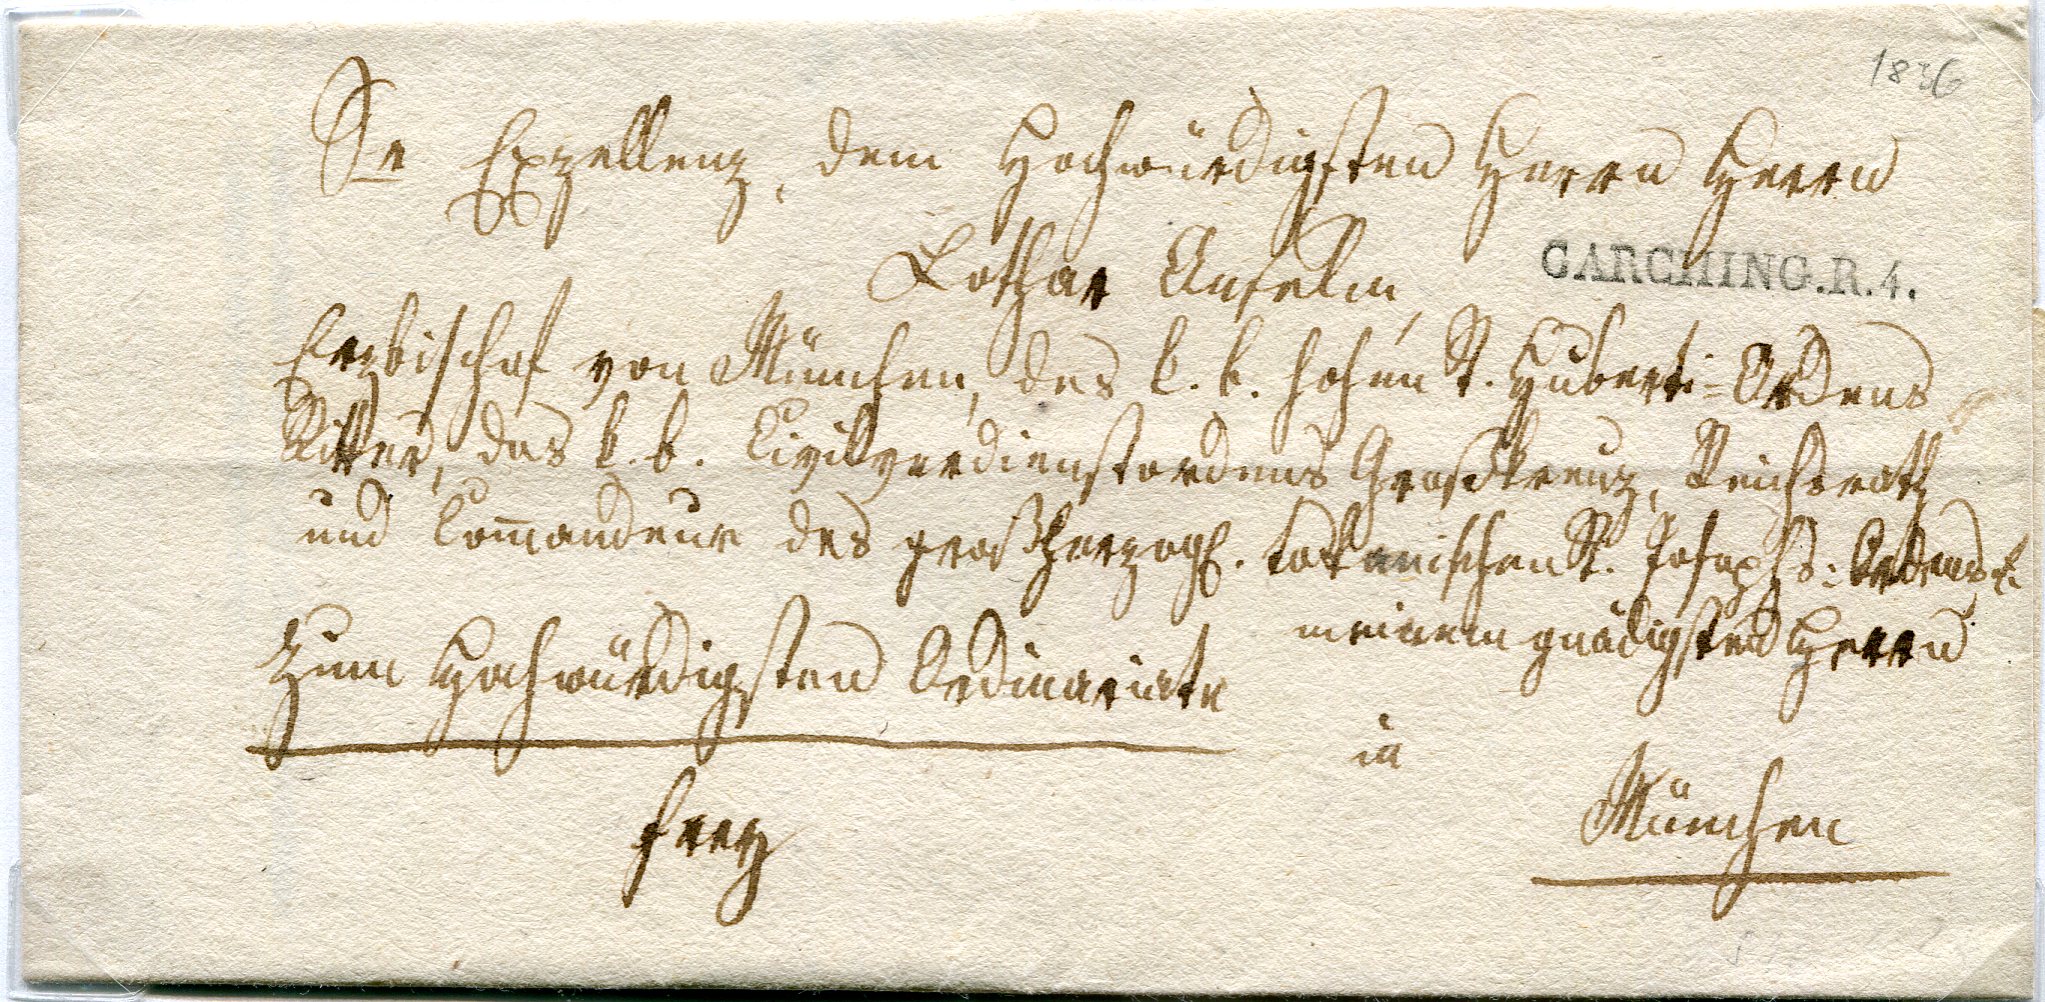 1836
Se Exzellenz, dem Hochwürdigsten Herrn Herrn
Lothar Anselm,
GARCHING.R.4.
Erzbischof von München, des k. b. hohen St. Huberti=Ordens
Ritter, des k. b. Civilverdienstordens Großkreuz, Reichsrath
und Com̄andeur des großherzogl. toskanischen St. Josephs=Ordens
meinem gnädigsten Herrn
Zum Hochwürdigsten Ordinariate
in
frey
München